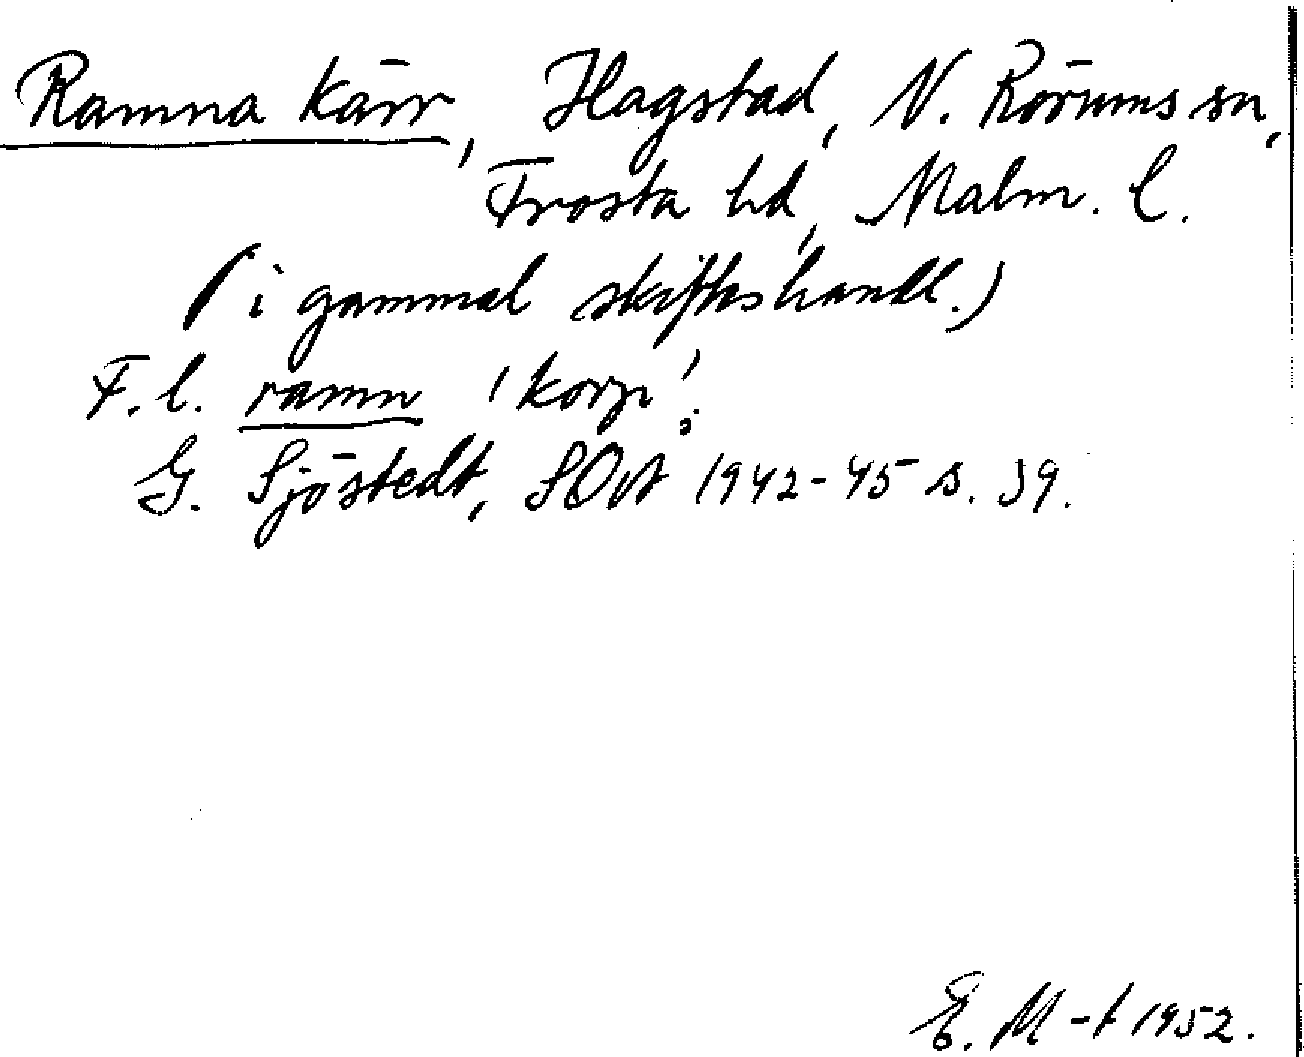 Ramna kärr, Hagstad, N. Rörums sn,
Frosta hd, Malm. l.
(i gammal skifteshandl.)
F. l. ramn 'korp';
G. Sjöstedt, SOÅ 1942-45 s. 39.
E. M-t 1952.